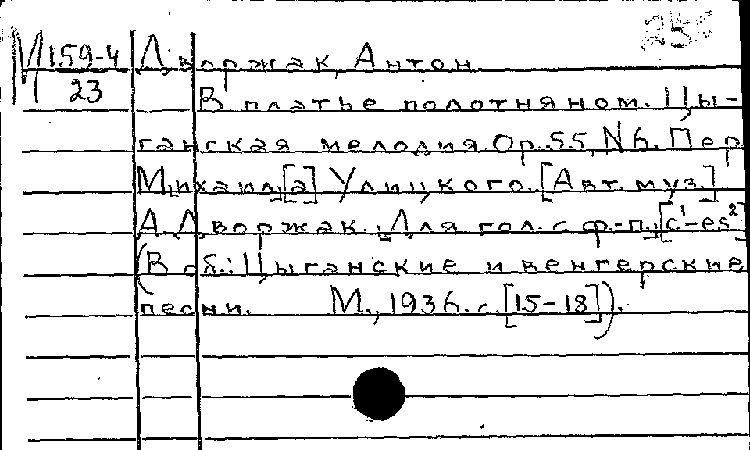 М 159-4 Дворжак, Антон.
23 В платье полотняном. Цы-
ганская мелодия. Op. 55, N 6. Пер.
Михаил[а] Улицкого. [Авт. муз.]
А. Дворжак. Для гол. с ф.-п. [c¹-es²]
(В сб.: Цыганские и венгерские
песни. М., 1936. с. [15-18]).